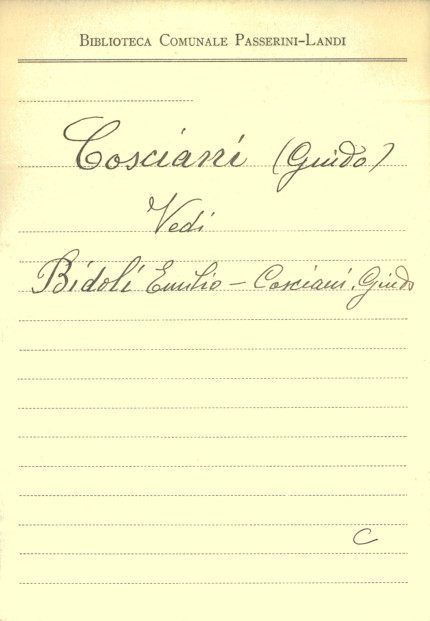 Biblioteca Comunale Passerini-Landi
Cosciani (Guido)
Vedi
Bidoli Emilio - Cosciani, Guido
C